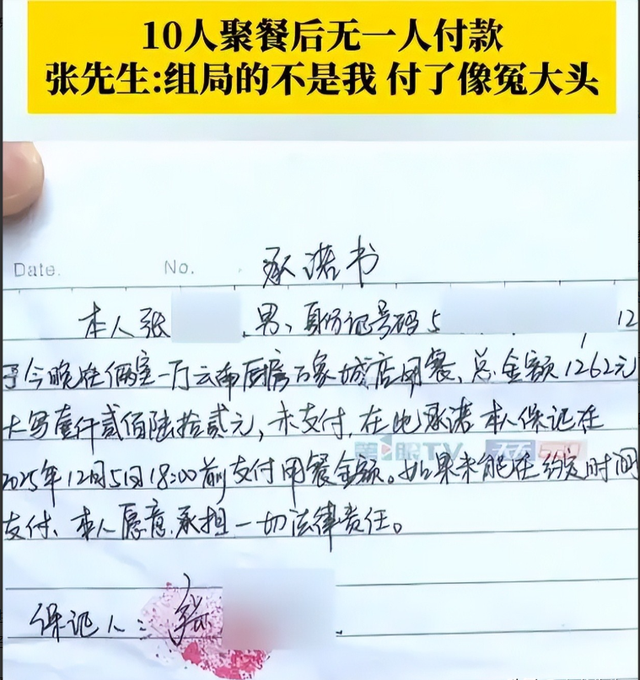 10人聚餐后无一人付款
张先生:组局的不是我 付了像冤大头
Date. No. 承诺书
本人张 ,男、身份证号码5 12
于今晚在俩室一厅云南厨房万象城店用餐、总金额1262元
大写壹仟贰佰陆拾贰元,未支付,在此承诺 本人保证在
2025年12月5日18:00前支付用餐金额。如果未能在约定时间
支付、本人愿意承担一切法律责任。
第一眼TV
保证人:张